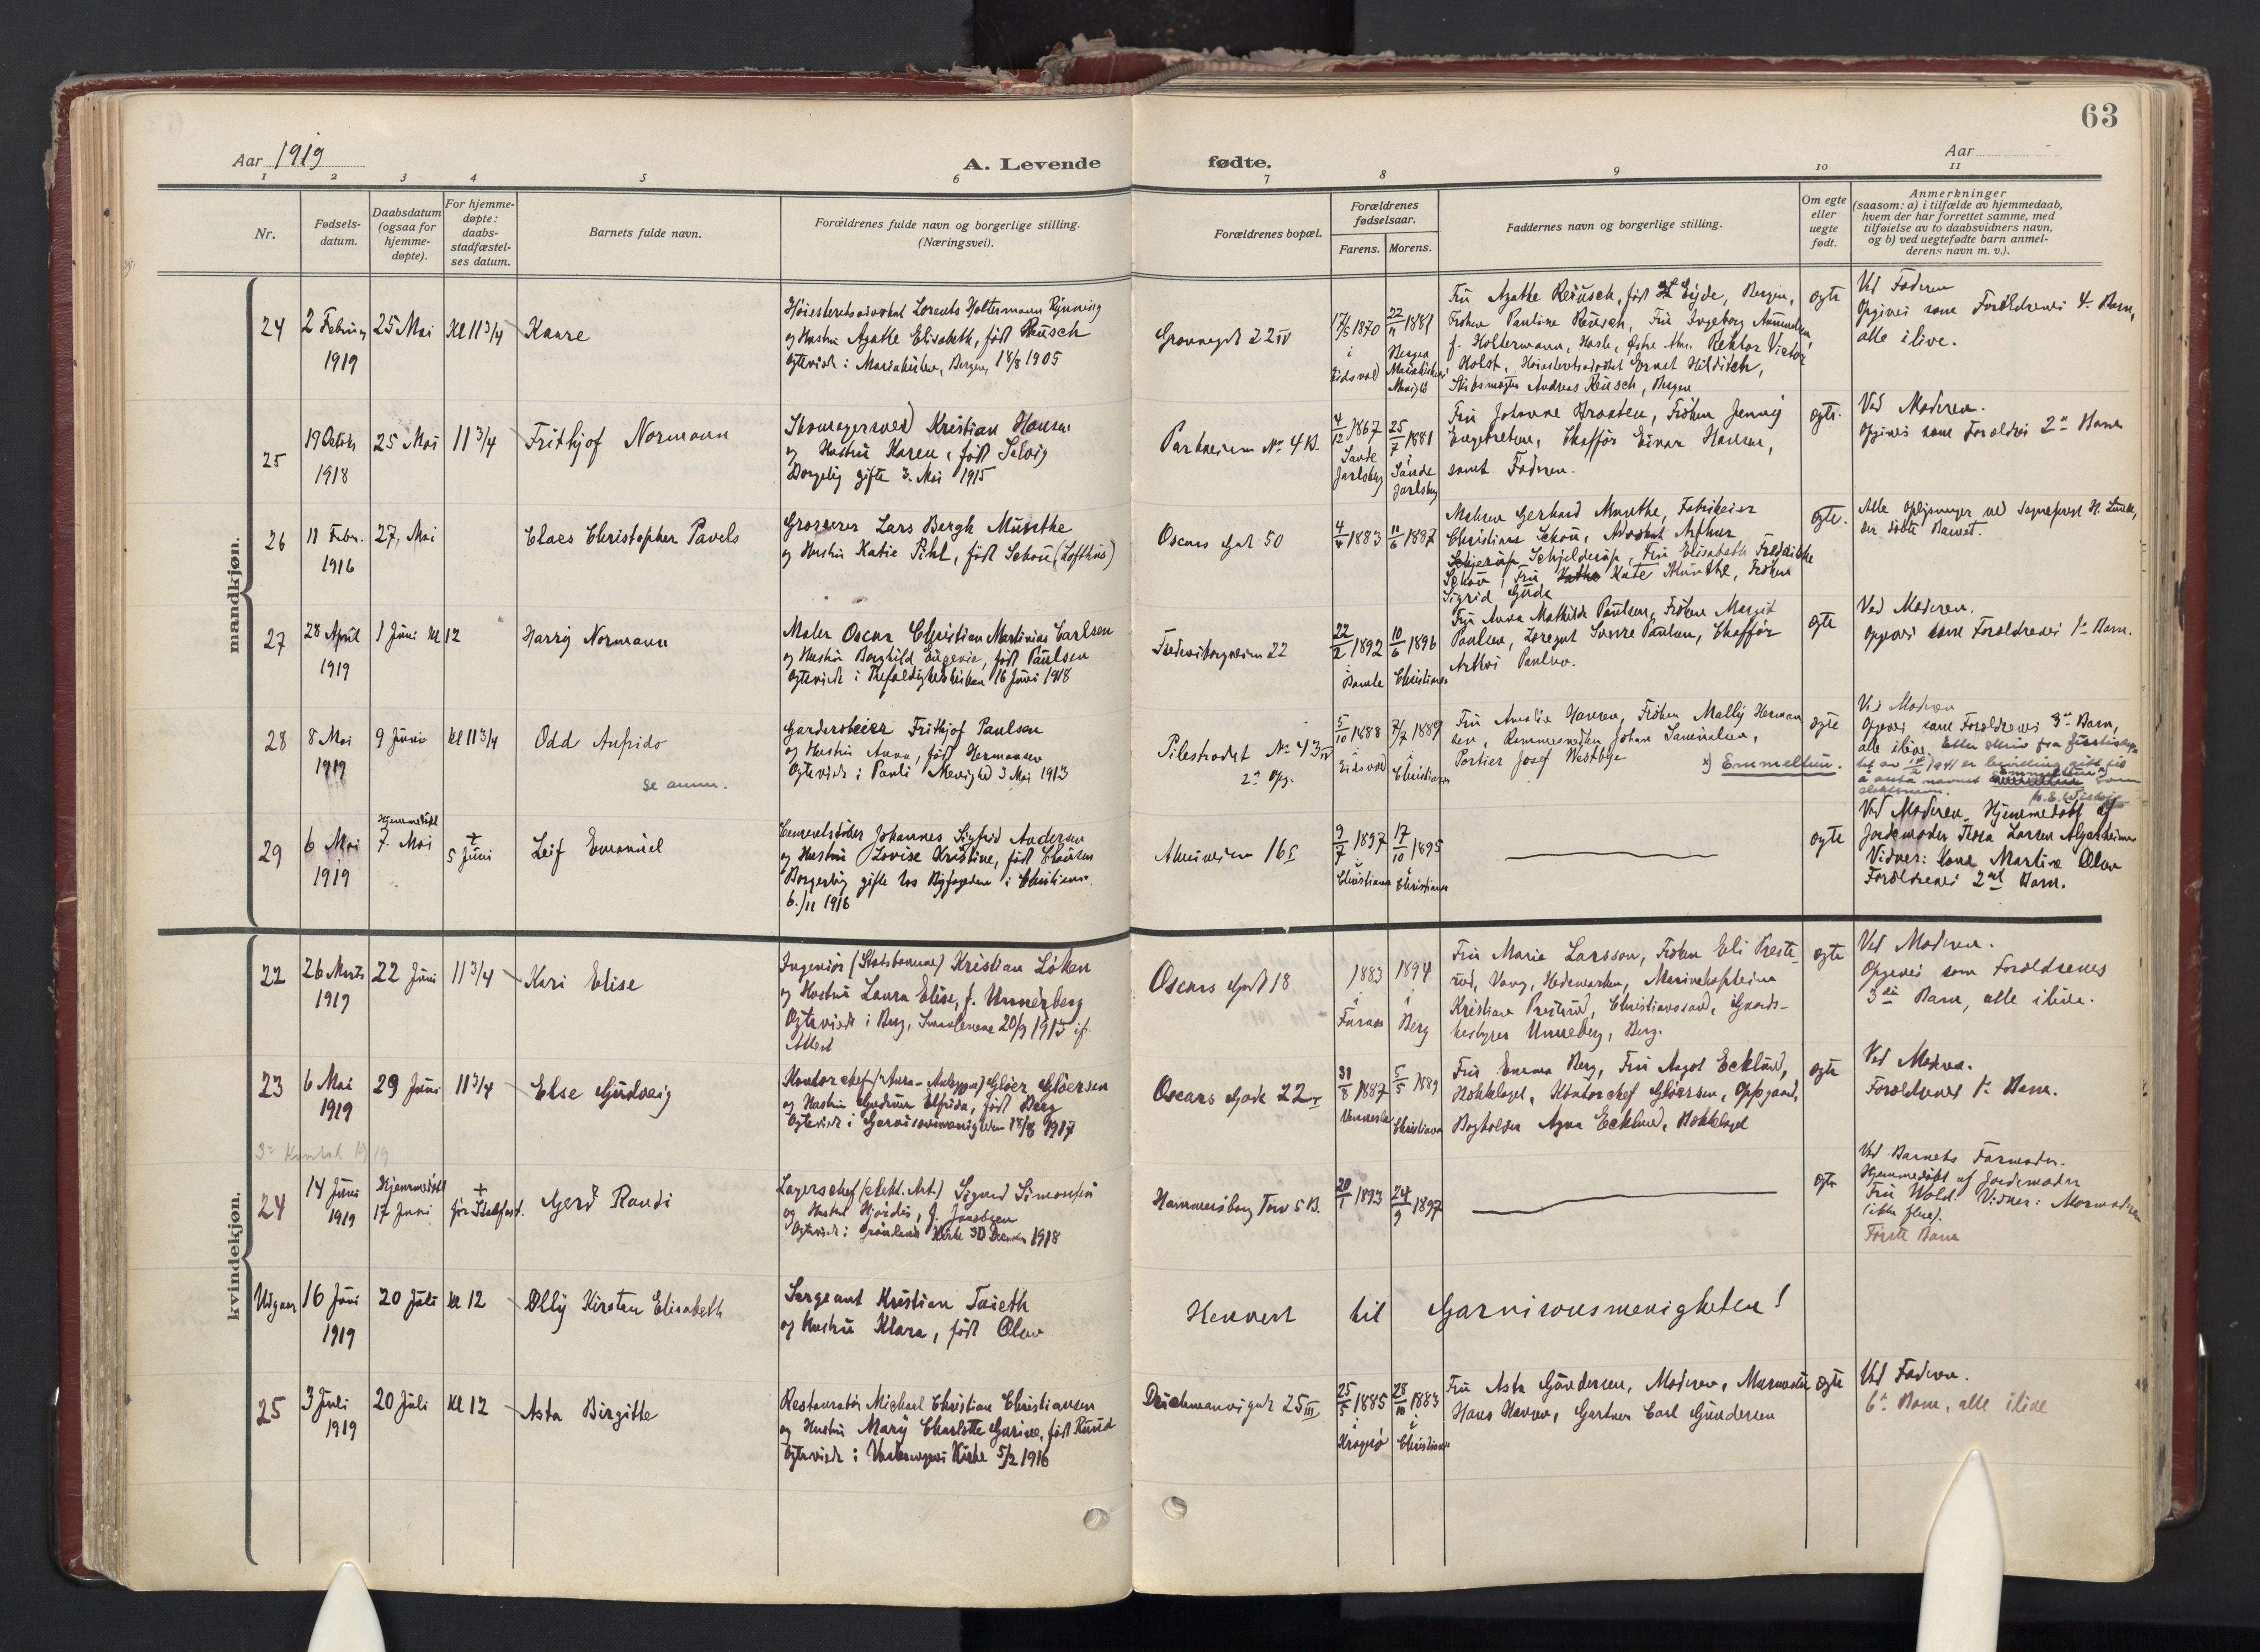 63
Aar 1919
A. Levende fødte.
Aar
1 2 3 4 5 6 7 8 9 10 11
Nr.
Fødsels-
datum.
Daabsdatum
(ogsaa for
hjemme-
døpte).
For hjemme-
døpte:
daabs-
stadfæstel-
ses datum.
Barnets fulde navn.
Forældrenes fulde navn og borgerlige stilling.
(Næringsvei).
Forældrenes bopæl.
Forældrenes
fødselsaar.
Farens. Morens.
Faddernes navn og borgerlige stilling.
Om egte
eller
uegte
født.
Anmerkninger
(saasom: a) i tilfælde av hjemmedaab,
hvem der har forrettet samme, med
tilføielse av to daabsvidners navn,
og b) ved uegtefødte barn anmel-
derens navn m. v.).
mandkjøn.
24
2 Februar
1919
25 Mai
Kl 11 3/4
Kaare
Høiesteretsadvokat Lorents Holtermann Rynning
og Hustru Agathe Elisabeth, født Reusch
Egteviede i Mariakirken, Bergen, 18/8 1905
22 IV
17/5 1870
i
Eidsvold
22/11 1881
Bergen
Fru Agathe Reusch, født Eyde, Bergen,
Frøken Pauline Reusch, Fru Ingeborg
f. Holtermann, Rektor Victor
Holst, Høiesteretsadvokat Ernst Hilditch,
Skibsmægler Andreas Reusch, Bergen
egte
Ved Faderen
Opgives som Forældrenes 4. Barn,
alle ilive.
25
19 October
1918
25 Mai
11 3/4
Frithjof Normann
Kristian Hansen
og Hustru Karen, født Selvig
Borgerlig gifte 3. Mai 1915
Parkveien No 4 B.
4/12 1867
Sande
Jarlsberg
25/7 1881
i
Sande
Jarlsberg
Fru Johanne Braaten, Frøken Jenny
Engebretsen, Chaffør Einar Hansen,
samt Faderen.
egte.
Ved Moderen.
Opgives som Forældres 2det Barn
26
11 Febr.
1916
27, Mai
Claes Christopher Pavels
Grosserer Lars Bergh Munthe
og Hustru Katie Pihl, født Schou (Lofthus)
Oscars Gade 50
4/4 1883
11/6 1887
Maleren Gerhard Munthe, Fabrikeier
Christian Schou, Advokat Arthur
Schjelderup, Fru Elisabeth Fredrikke
Schou, Fru Kate Munthe, Frøken
Sigrid Gude
egte.
Alle Oplysninger ved Sogneprest
der døbte Barnet.
27
28 April
1919
1 Juni Kl 12
Harry Normann
Maler Oscar Christian Martinius Carlsen
og Hustru Borghild Eugenie, født Paulsen
Egteviede i Trefoldighetskirken 16 Juni 1918
22
22/2 1892
i
Bamle
10/6 1896
Christiania
Fru Anna Mathilde Paulsen, Frøken Margit
Paulsen, Sverre Paulsen, Chaffør
Paulsen.
egte
Ved Moderen.
Opgives som Forældrenes 1ste Barn.
28
8 Mai
1919
9 Juni
Kl 11 3/4
Odd Anfrido
se anm.
Frithjof Paulsen
og Hustru Anna, født Hermansen
Egteviede i Pauli Menighed 3 Mai 1913
Pilestrædet No 43 IV
2. Opg.
5/10 1888
i
Eidsvold
7/7 1889
i
Christiania
Fru Amalie Hansen, Frøken Mally Herman
sen, Johan Samuelsen,
Portier Josef Westbye
x) Emmelhun.
egte
Ved Moderen
Opgives som Forældrenes 3die Barn,
alle ilive.
å anta navnet
slektsnavn.
29
6 Mai
1919
Hjemmedøbt
7. Mai
+
5 Juni
Leif Emanuel
Cementstøber Johannes Sigfrid Andersen
og Hustru Lovise Kristine, født
Borgerlig gifte hos Byfogeden i Christiania
6./11 1916
16 I
9/7 1897
i
Christiania
17/10 1895
i
Christiania
egte
Ved Moderen. Hjemmedøbt af
Jordemoder Larsen
Vidner: Kone Martine Olsen
Forældrenes 2det Barn.
kvindekjøn.
22
26 Marts
1919
22 Juni
11 3/4
Kari Elise
Ingeniør (Statsbanerne) Kristian Løken
og Hustru Laura Elise, f. Unneberg
Egteviede i Berg, Smaalenene 20/9 1913 if.
Attest
Oscars Gade 18
1883
i
Furnes
1894
i
Berg
Fru Marie Larsson, Frøken Eli Preste-
rud, Vang, Hedemarken, Marinekaptein
Kristian Presterud, Christianssand, Gaards-
bestyrer Unneberg, Berg.
egte
Ved Moderen.
Opgives som Forældrenes
3die Barn, alle ilive.
23
6 Mai
1919
29 Juni
11 3/4
Else Gudveig
Kontorchef Gløer Gløersen
og Hustru Gudrun Elfrida, født Berg
Egteviede i Garnisonsmenigheden 18/8 1917
Oscars Gade 22
31/8 1887
5/5 1889
Christiania
Fru Emma Berg, Fru Aagot Ecklund,
Bækkelaget, Kontorchef Gløersen, Oppegaard,
Bogholder Ecklund, Bækkelaget
egte
Ved Moderen.
Forældrenes 1ste Barn.
3die Kvartal 1919
24
14 Juni
1919
Hjemmedøbt
17 Juni
+
før Stadfæst.
Gerd Randi
Lagerschef (elekt. Art.) Sigurd Simonsen
og Hustru Hjørdis, f. Jacobsen
Egteviede i Grønlands Kirke 30 Decemb. 1918
Hammersborg Torv 5 B.
20/1 1893
24/9 1897
egte
Ved Barnets Farmoder.
Hjemmedøbt af Jordemoder
Fru Wold. Vidner: Mormoderen
(ikke flere).
Første Barn
Udgaar
16 Juni
1919
20 Juli
Kl 12
Olly Kirsten Elisabeth
Sergeant Kristian
og Hustru Klara, født Olsen
Henvert til Garnisonsmenigheten!
25
3 Juli
1919
20 Juli
Kl 12
Asta Birgitte
Restauratør Michael Christian Christiansen
og Hustru Mary Charlotte Garine, født Ruud
Egteviede i Kirke 5/2 1916
Deichmansgade 25 III
25/5 1885
i
Kragerø
28/10 1883
i
Christiania
Fru Asta Gundersen, Moderen,
Hans Hansen, Gartner Carl Gundersen
egte
Ved Faderen.
6te Barn, alle ilive